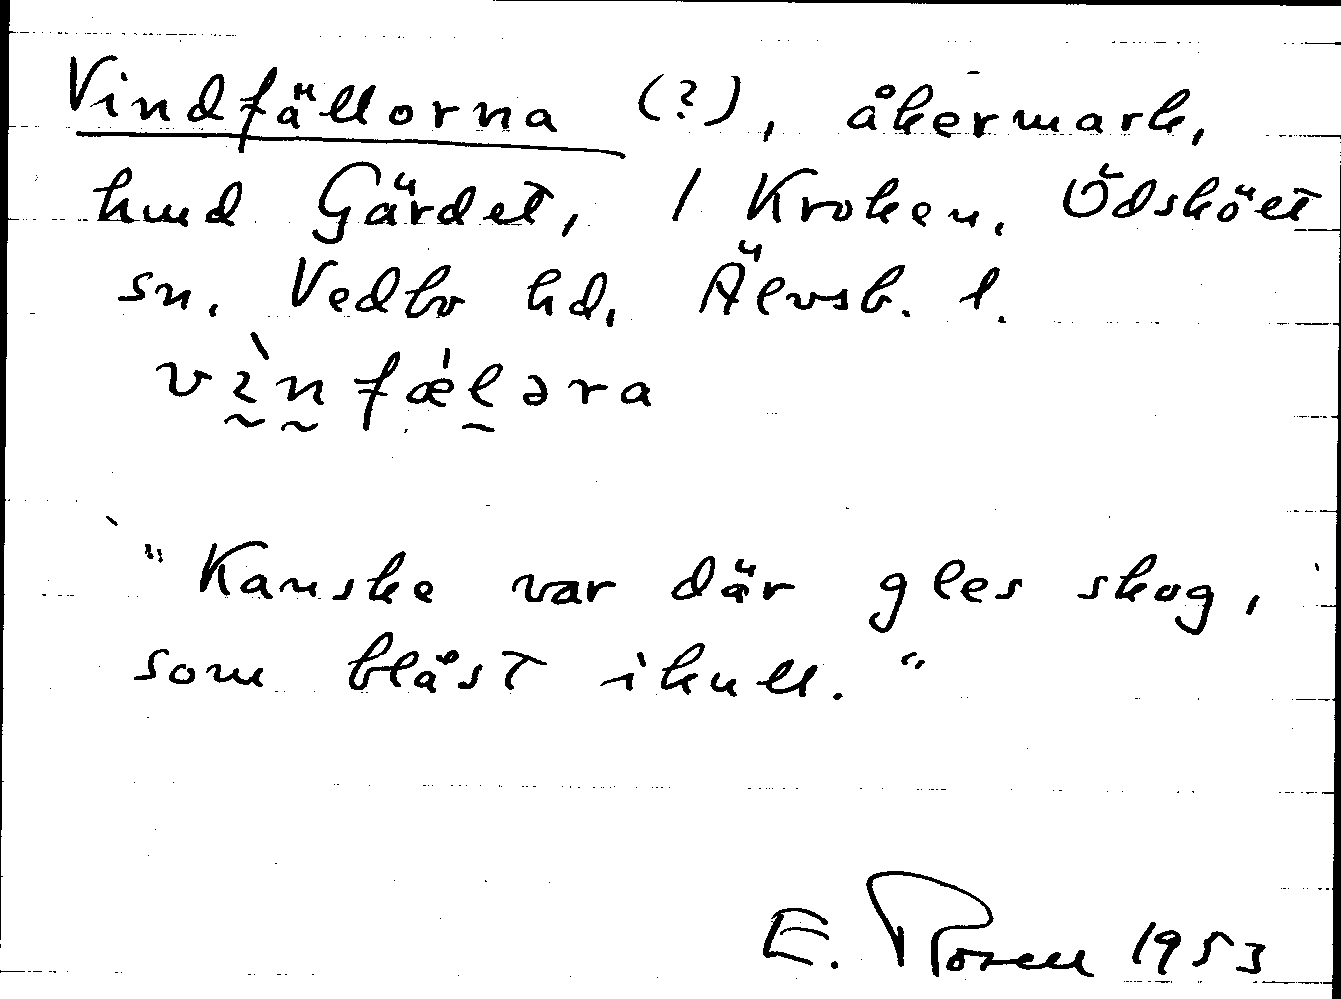 Vindfällorna (?), åkermark,
hmd Gärdet, 1 Kroken, Ödsköet
sn. Vedbo hd, Älvsb. l.
vìnfǽləra
"Kanske var där gles skog,
som blåst ikull."
E. Rosell 1953